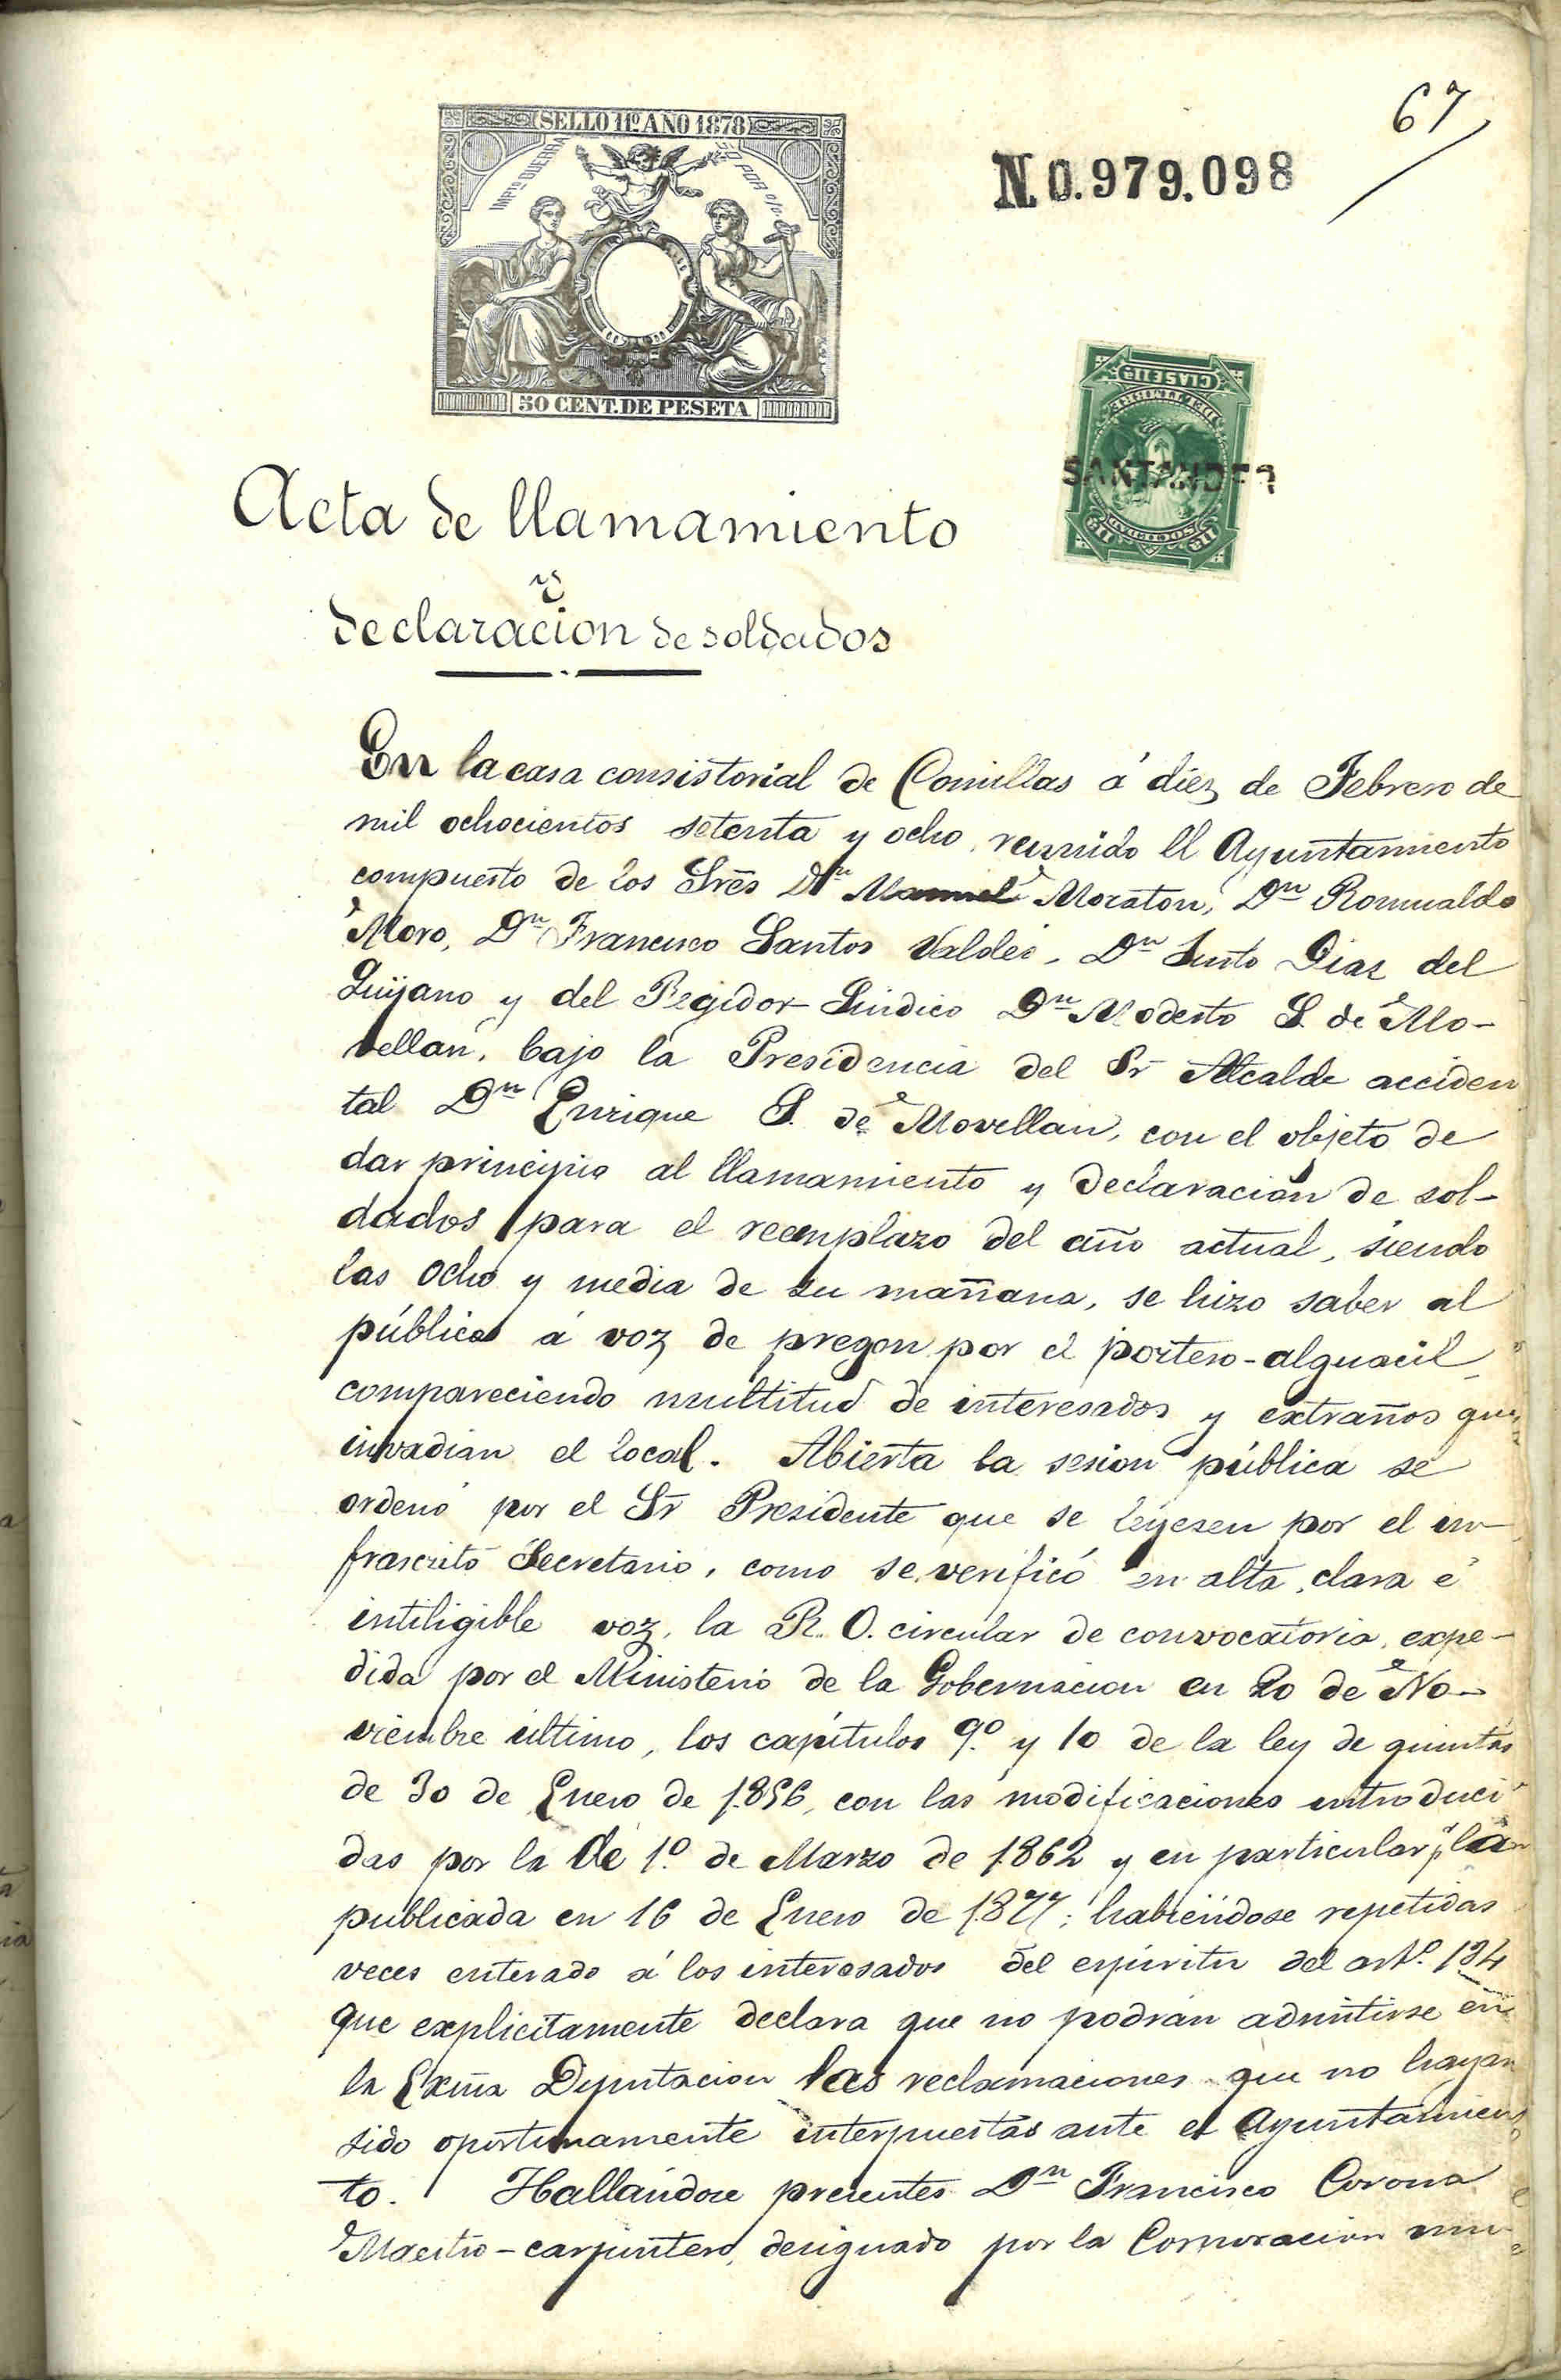 67
SELLO 11º AÑO 1878
IMPTO GUERRA 50 POR 0/0
N.0.979.098
50 CENT. DE PESETA
CLASE 11ª
DEL TIMBRE
SOCIEDAD
11ª 11ª
SANTANDER
Acta de llamamiento
y
declaracion de soldados
En la casa consistorial de Comillas á diez de Febrero de
mil ochocientos setenta y ocho, reunido El Ayuntamiento
compuesto de los Sres Dn Manuel Moraton, Dn Romualdo
Moro, Dn Francisco Santos Valdes, Dn Justo Diaz del
Quijano y del Regidor Sindico Dn Modesto S. de Mo-
vellan, bajo la Presidencia del Sr Alcalde acciden
tal Dn Enrique S. de Movellan, con el objeto de
dar principio al llamamiento y declaracion de sol-
dados para el reemplazo del año actual, siendo
las ocho y media de su mañana, se hizo saber al
público á voz de pregon por el portero-alguacil,
compareciendo multitud de interesados y extraños que
invadian el local. Abierta la sesion pública se
ordenó por el Sr Presidente que se leyesen por el in-
frascrito Secretario, como se verificó en alta, clara é
intiligible voz, la R. O. circular de convocatoria, expe-
dida por el Ministerio de la Gobernacion en 20 de No-
viembre último, los capítulos 9º y 10 de la ley de quintas
de 30 de Enero de 1.856, con las modificaciones introduci
das por la de 1º de Marzo de 1862 y en particular la
publicada en 16 de Enero de 1.877; habiéndose repetidas
veces enterado á los interesados del espíritu del artº 134
que explicitamente declara que no podrán admitirse en
la Exma Diputacion las reclamaciones que no hayan
sido oportunamente interpuestas ante el Ayuntamien
to. Hallándose presentes Dn Francisco Corona
Maestro-carpintero, designado por la Corporacion mu-